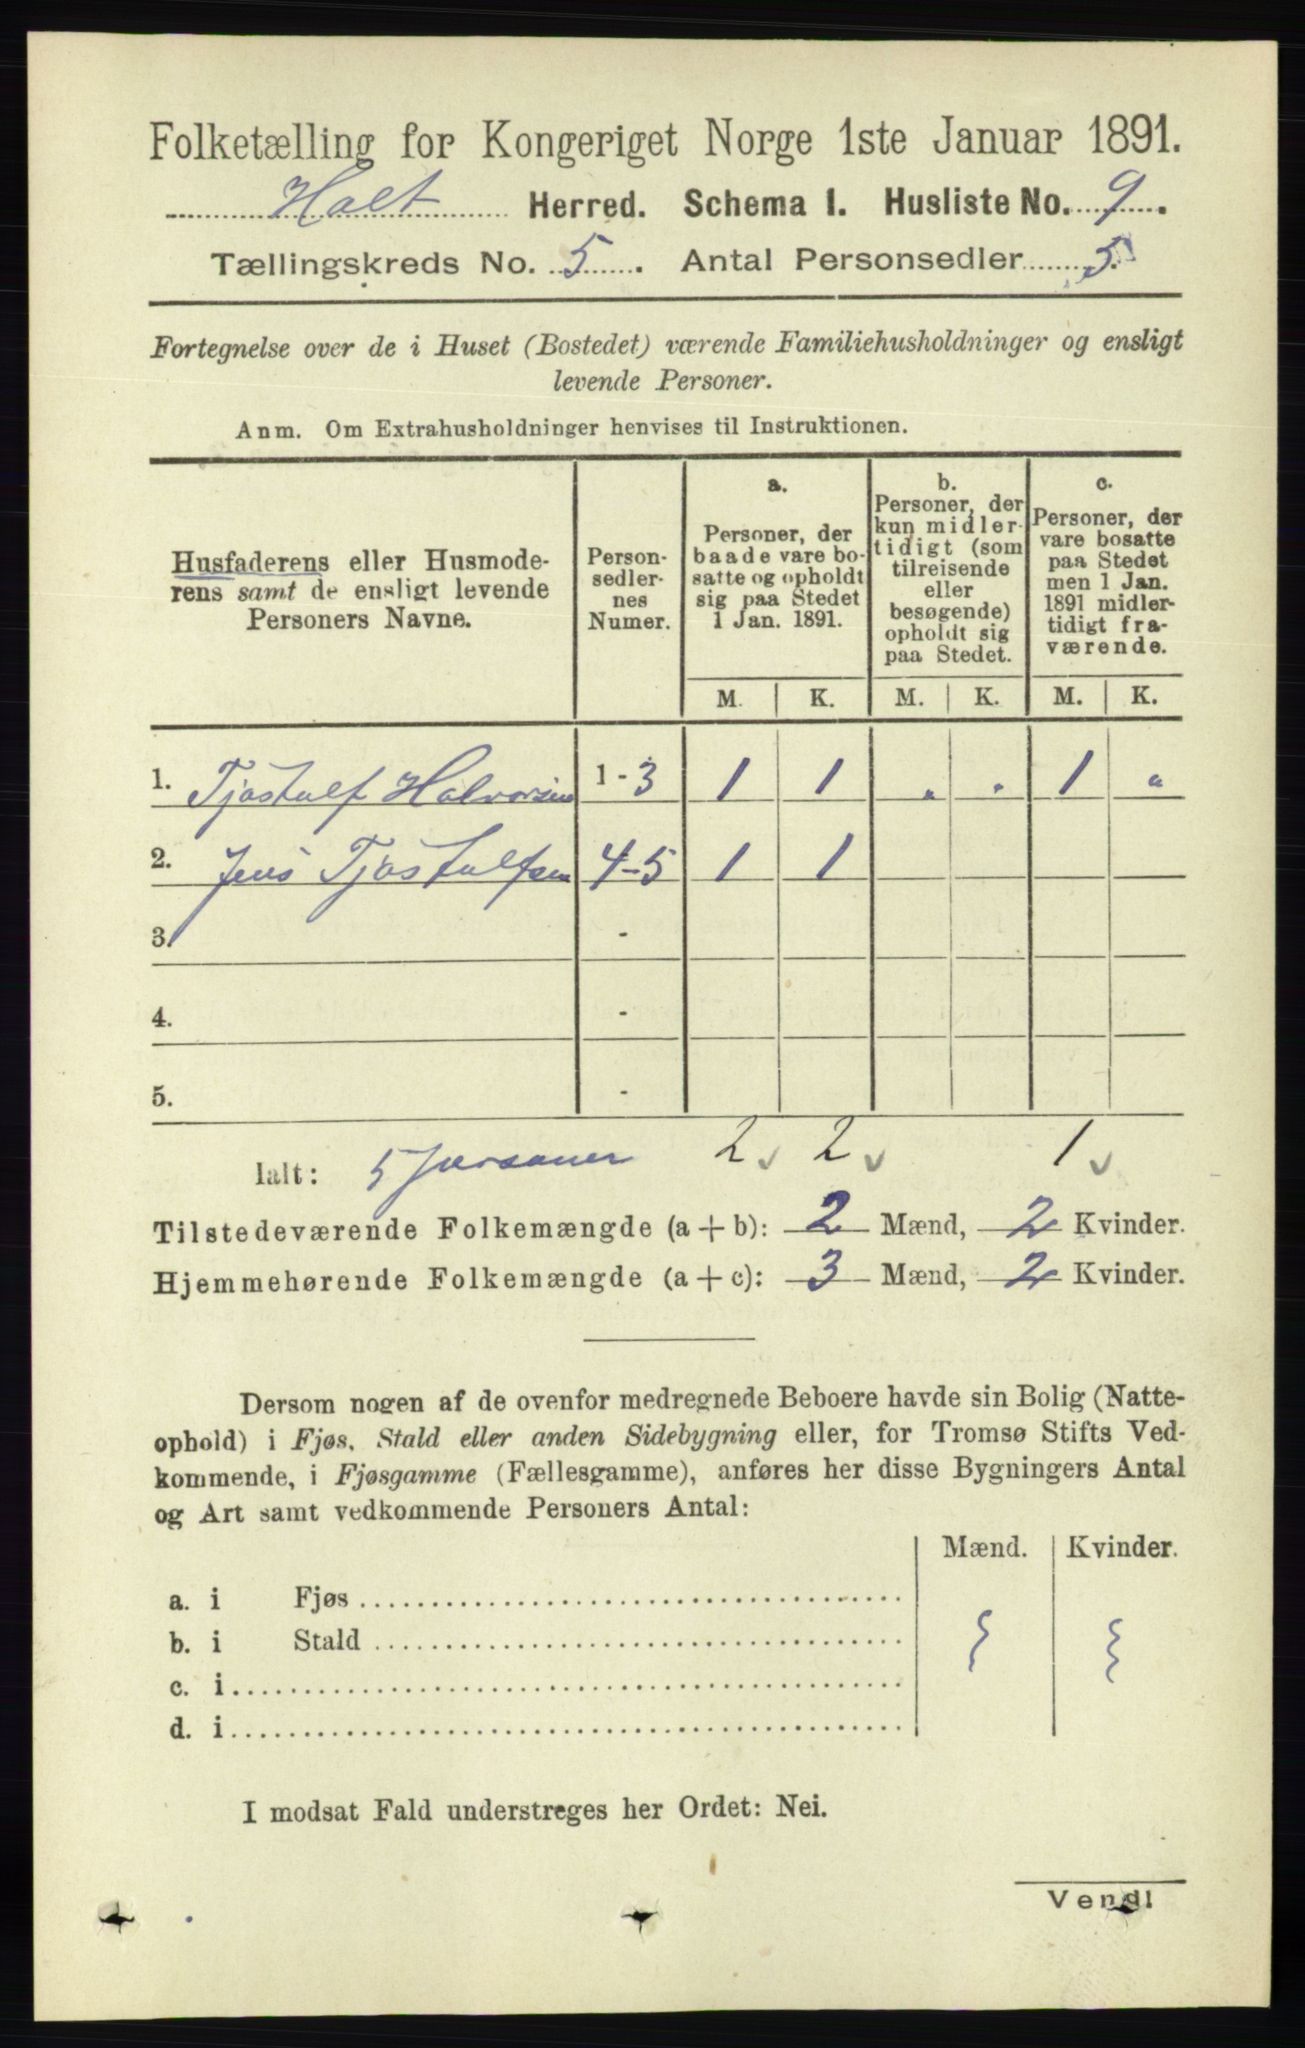 Folketælling for Kongeriget Norge 1ste Januar 1891.
Holt Herred. Schema 1. Husliste No. 9.
Tællingskreds No. 5. Antal Personsedler 5.
Fortegnelse over de i Huset (Bostedet) værende Familiehusholdninger og ensligt
levende Personer.
Anm. Om Extrahusholdninger henvises til Instruktionen.
Husfaderens eller Husmode-
rens samt de ensligt levende
Personers Navne.
Person-
sedler-
nes
Numer.
a.
Personer, der
baade vare bo-
satte og opholdt
sig paa Stedet
1 Jan. 1891.
b.
Personer, der
kun midler-
tidigt (som
tilreisende
eller
besøgende)
opholdt sig
paa Stedet.
c.
Personer, der
vare bosatte
paa Stedet
men 1 Jan.
1891 midler-
tidigt fra-
værende.
M. K. M. K. M. K.
1. Tjostulf Halvorsen 1-3 1 1 " " 1 "
2. Jens Tjostulfsen 4-5 1 1
3. -
4. -
5. -
Ialt: 5 personer 2 2 1
Tilstedeværende Folkemængde (a + b): 2 Mænd, 2 Kvinder.
Hjemmehørende Folkemængde (a + c): 3 Mænd, 2 Kvinder.
Dersom nogen af de ovenfor medregnede Beboere havde sin Bolig (Natte-
ophold) i Fjøs, Stald eller anden Sidebygning eller, for Tromsø Stifts Ved-
kommende, i Fjøsgamme (Fællesgamme), anføres her disse Bygningers Antal
og Art samt vedkommende Personers Antal:
Mænd. Kvinder.
a. i Fjøs
b. i Stald
c. i
d. i
I modsat Fald understreges her Ordet: Nei.
Vend!